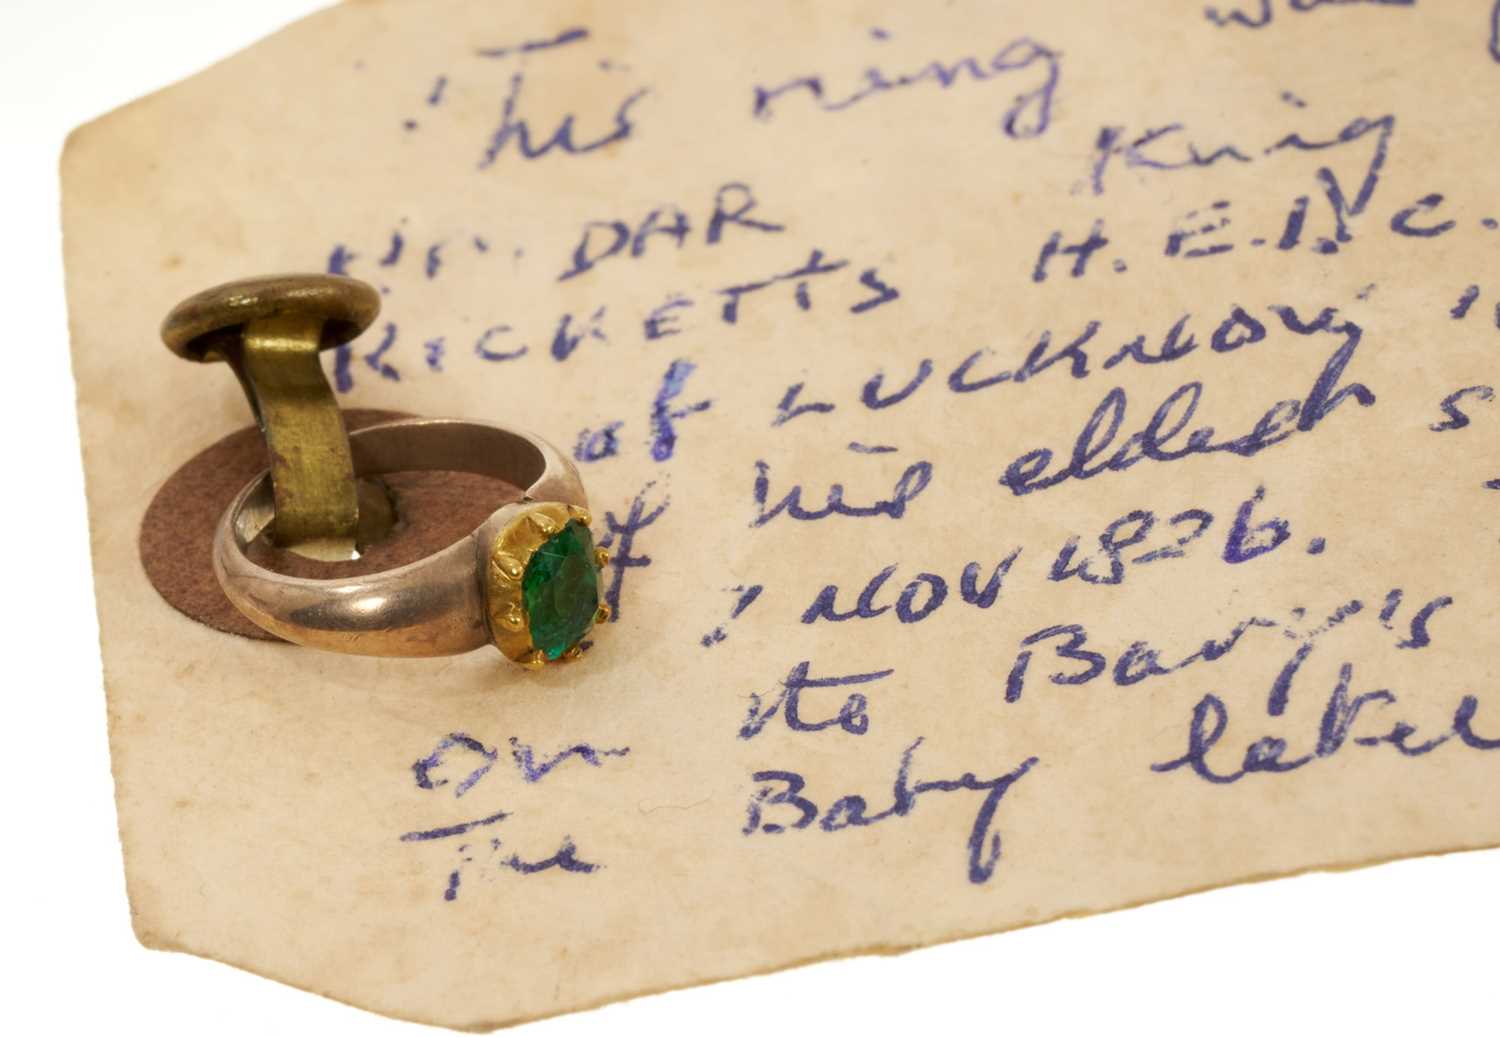 This ring was
Knig
Mr. DAR
RICKETTS H.E.I.C.
of LUCKNOW
of his eldest s
7 NOV 1826.
On to Bary's
The Baby label